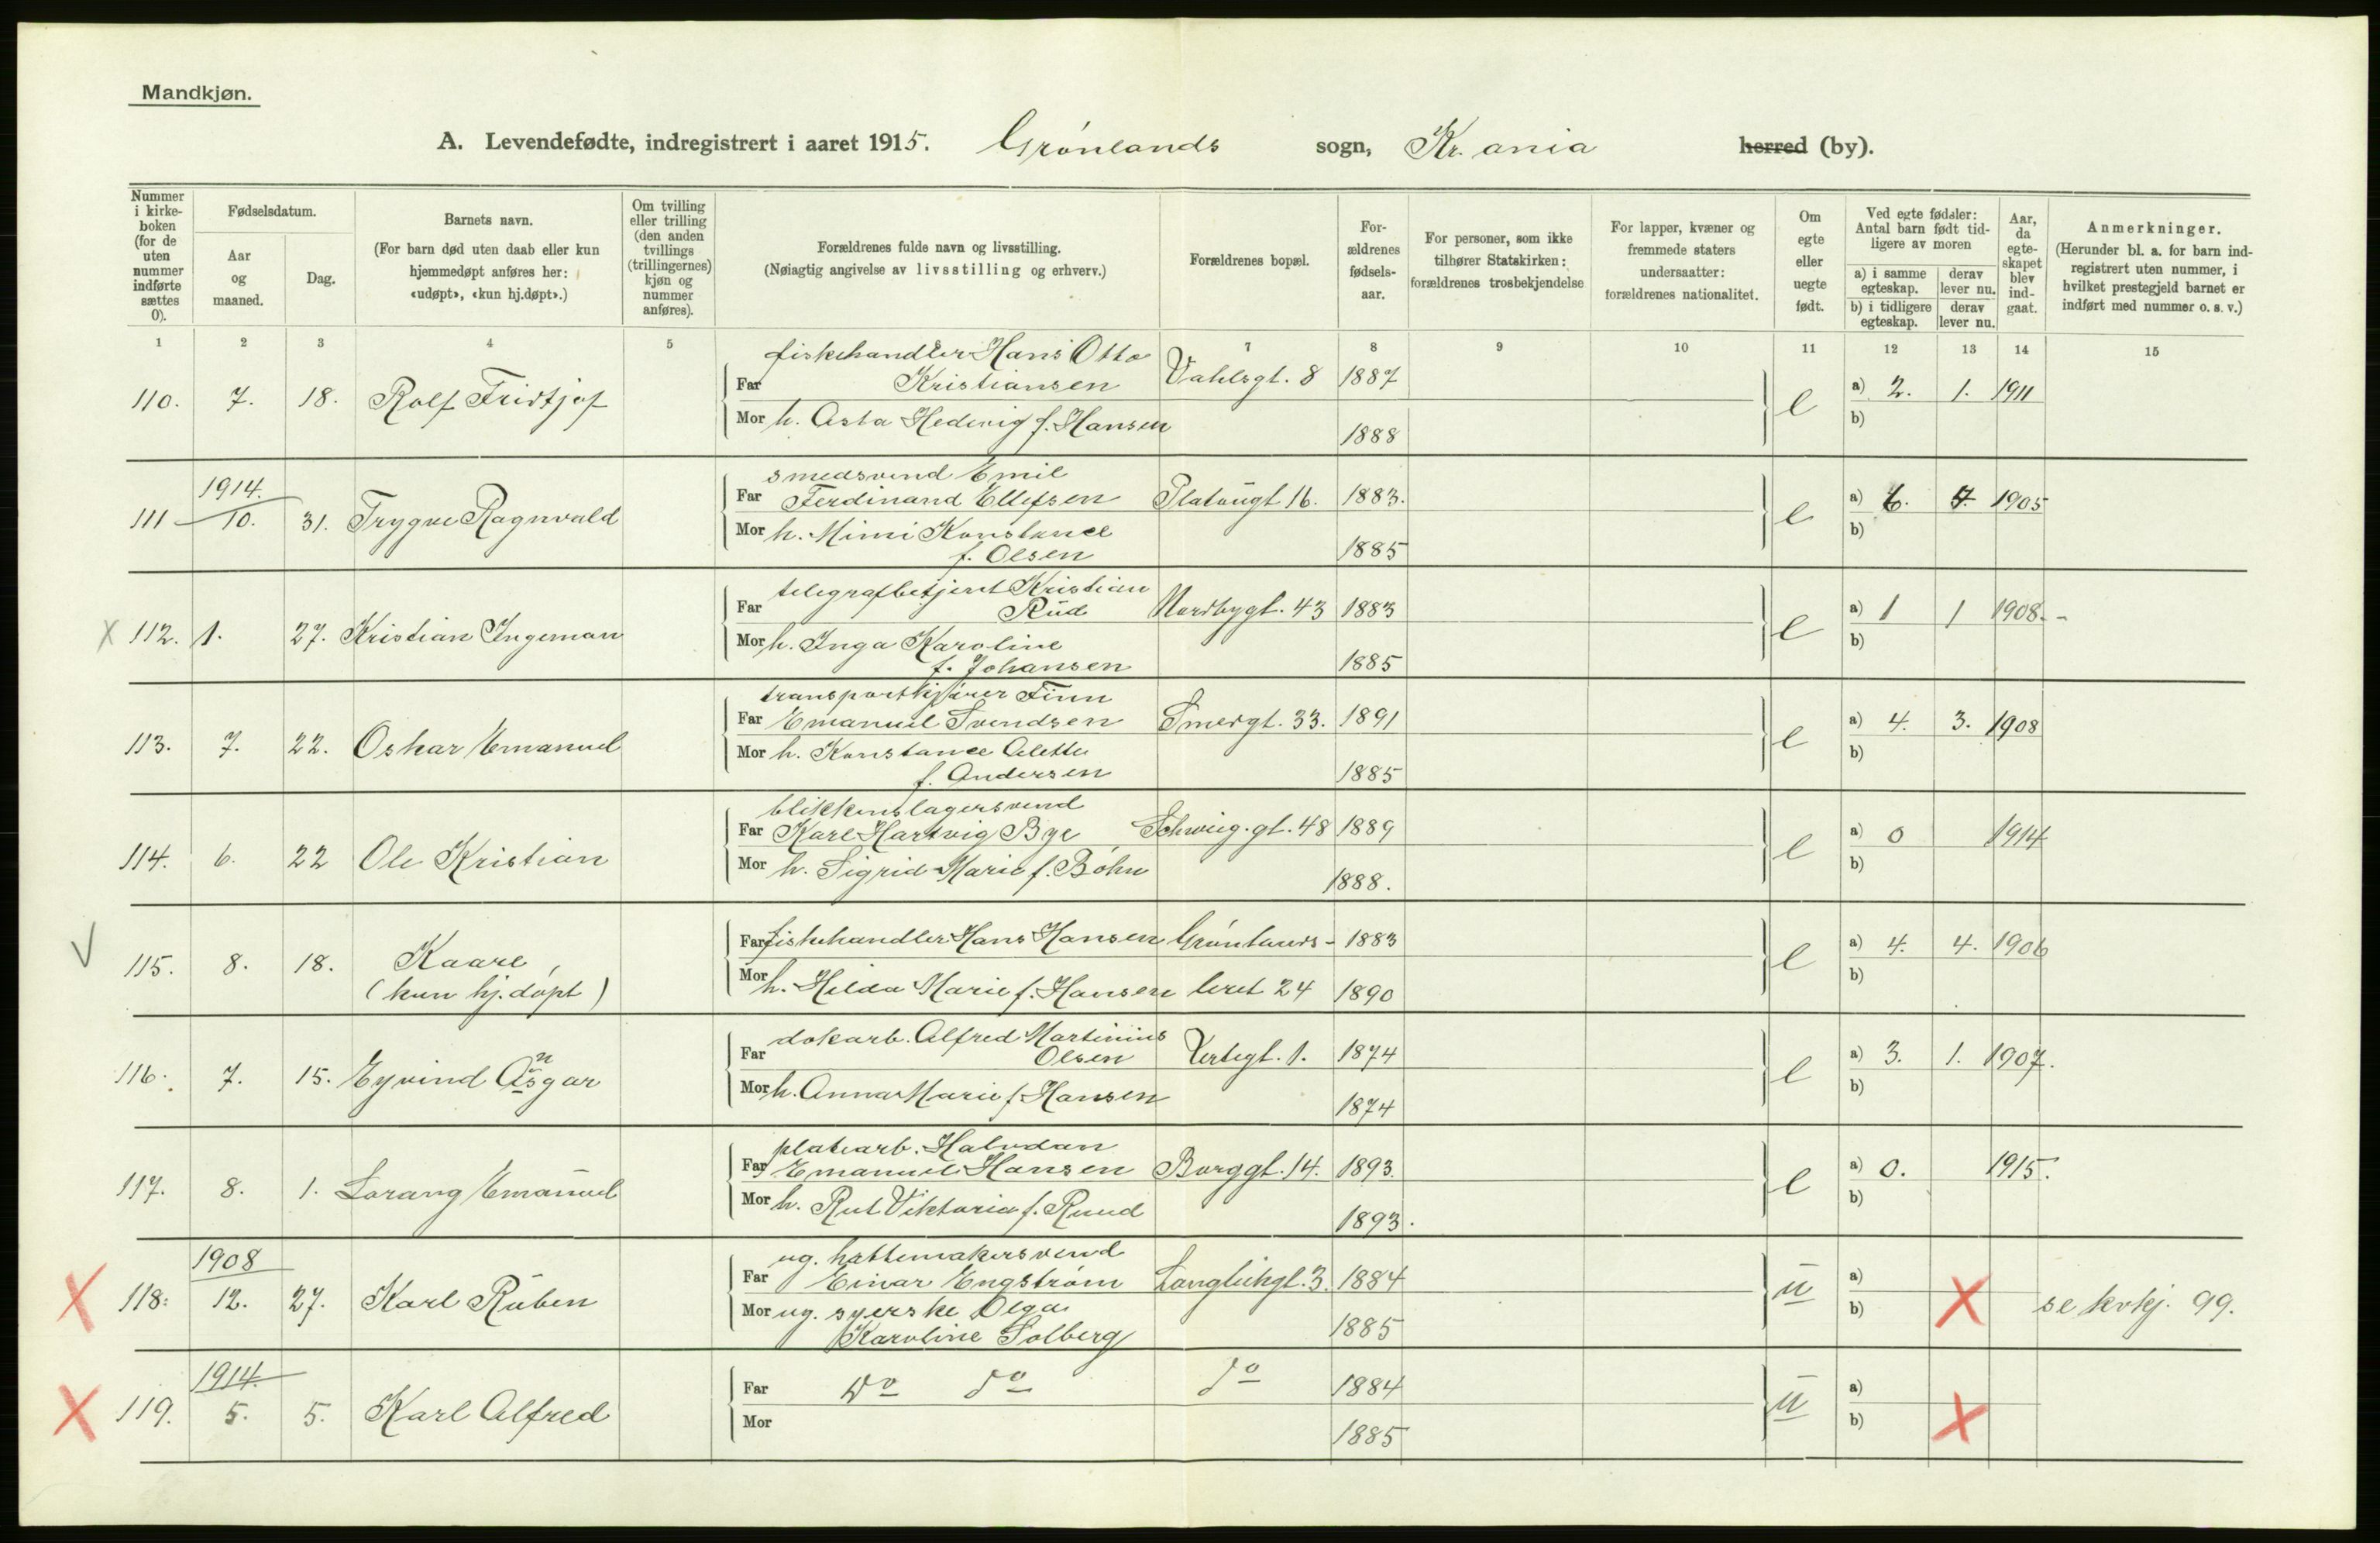 Mandkjøn.
A. Levendefødte, indregistrert i aaret 1915. Grønlands sogn, Kr.ania herred (by).
Nummer i kirke-boken (for de uten nummer indførte sættes 0).
Fødselsdatum.
Aar og maaned.
Dag.
Barnets navn.
(For barn død uten daab eller kun hjemmedøpt anføres her: «udøpt», «kun hj.døpt».)
Om tvilling eller trilling (den anden tvillings (trillingernes) kjøn og nummer anføres).
Forældrenes fulde navn og livsstilling.
(Nøiagtig angivelse av livsstilling og erhverv.)
Forældrenes bopæl.
For-ældrenes fødsels-aar.
For personer, som ikke tilhører Statskirken: forældrenes trosbekjendelse
For lapper, kvæner og fremmede staters undersaatter: forældrenes nationalitet.
Om egte eller uegte født.
Ved egte fødsler: Antal barn født tid-ligere av moren
a) i samme egteskap.
derav lever nu.
b) i tidligere egteskap.
derav lever nu.
Aar, da egte-skapet blev ind-gaat.
Anmerkninger.
(Herunder bl. a. for barn ind-registrert uten nummer, i hvilket prestegjeld barnet er indført med nummer o. s. v.)
1 2 3 4 5 7 8 9 10 11 12 13 14 15
fiskehandler Hans Otto
110. 7. 18. Rolf Fridtjof Far Kristiansen Vahlsgt. 8 1887 e a) 2. 1. 1911
Mor h. Asta Hedvig f. Hansen 1888 b)
1914. smedsvend Emil
111 10. 31. Trygve Ragnvald Far Ferdinand Ellefsen Platougt 16. 1883. e a) 6. 1905
Mor h. Mimi Konstance b)
f. Olsen 1885
telegrafbetjent Kristian
X 112. 1. 27. Kristian Ingeman Far Rud Nordbygt. 43 1883 e a) 1 1 1908.-
Mor h. Inga Karoline b)
f. Johansen 1885
transportkjører Finn
113. 7. 22. Oskar Emanuel Far Emanuel Svendsen Smedgt. 33. 1891 e a) 4. 3. 1908
Mor h. Konstance Alette b)
f. Andersen 1885
blikkenslagersvend
114. 6. 22 Ole Kristian Far Karl Hartvig Bye Schweig.gt. 48 1889 e a) 0 1914
Mor h. Sigrid Marie f. Bøhn 1888. b)
V 115. 8. 18. Kaare, Far fiskehandler Hans Hansen Grønlands- 1883 e a) 4. 4. 1906
(kun hj.døpt) Mor h. Hilda Marie f. Hansen leret 24 1890 b)
dokarb. Alfred Martinius
116. 7. 15. Eyvind Asgar n Far Olsen Vertsgt. 1. 1874 e a) 3. 1. 1907.
Mor h. Anna Marie f. Hansen 1874 b)
platearb. Halvdan
117. 8. 1. Lorang Emanuel Far Emanuel Hansen Borggt. 14. 1893. e a) 0. 1915.
Mor h. Rut Viktoria f. Ruud 1893. b)
1908 ug. hattemakersvend
X 118. 12. 27. Karl Ruben Far Einar Engstrøm Langleikgt. 3. 1884 u a) X
Mor ug. syerske Olga b) se kvkj. 99.
Karoline Solberg 1885
1914.
X 119. 5. 5. Karl Alfred Far Do do do 1884 u a) X
Mor 1885 b)